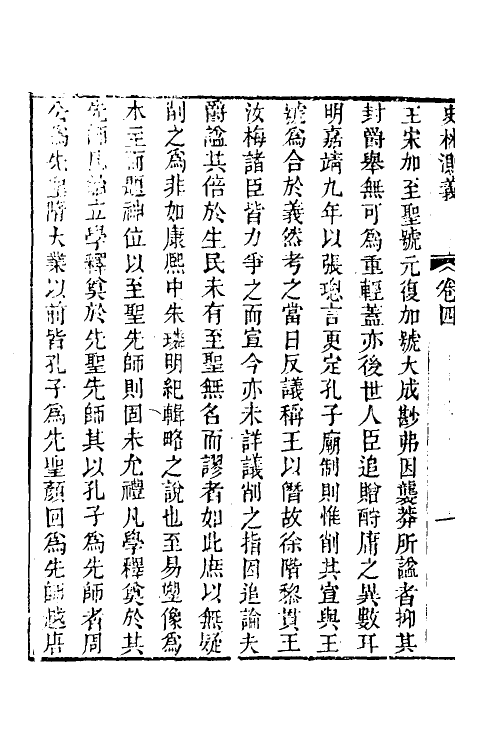 史林測義 卷四 一
王宋加至聖號元復加號大成尠弗因襲莽所諡者抑其
封爵舉無可為重輕蓋亦後世人臣追贈酧庸之異數耳
明嘉靖九年以張璁言更定孔子廟制則惟削其宣與王
號為合於義然考之當日反議稱王以僭故徐階黎貫王
汝梅諸臣皆力爭之而宣今亦未詳議削之指因追論夫
爵諡其倍於生民未有至聖無名而謬者如此庶以無疑
削之為非如康熙中朱璘明紀輯略之說也至易塑像為
木主而題神位以至聖先師則固未允禮凡學釋奠於其
先師凡始立學釋奠於先聖先師其以孔子為先師者周
公為先聖隋大業以前皆孔子為先聖顏回為先師越唐